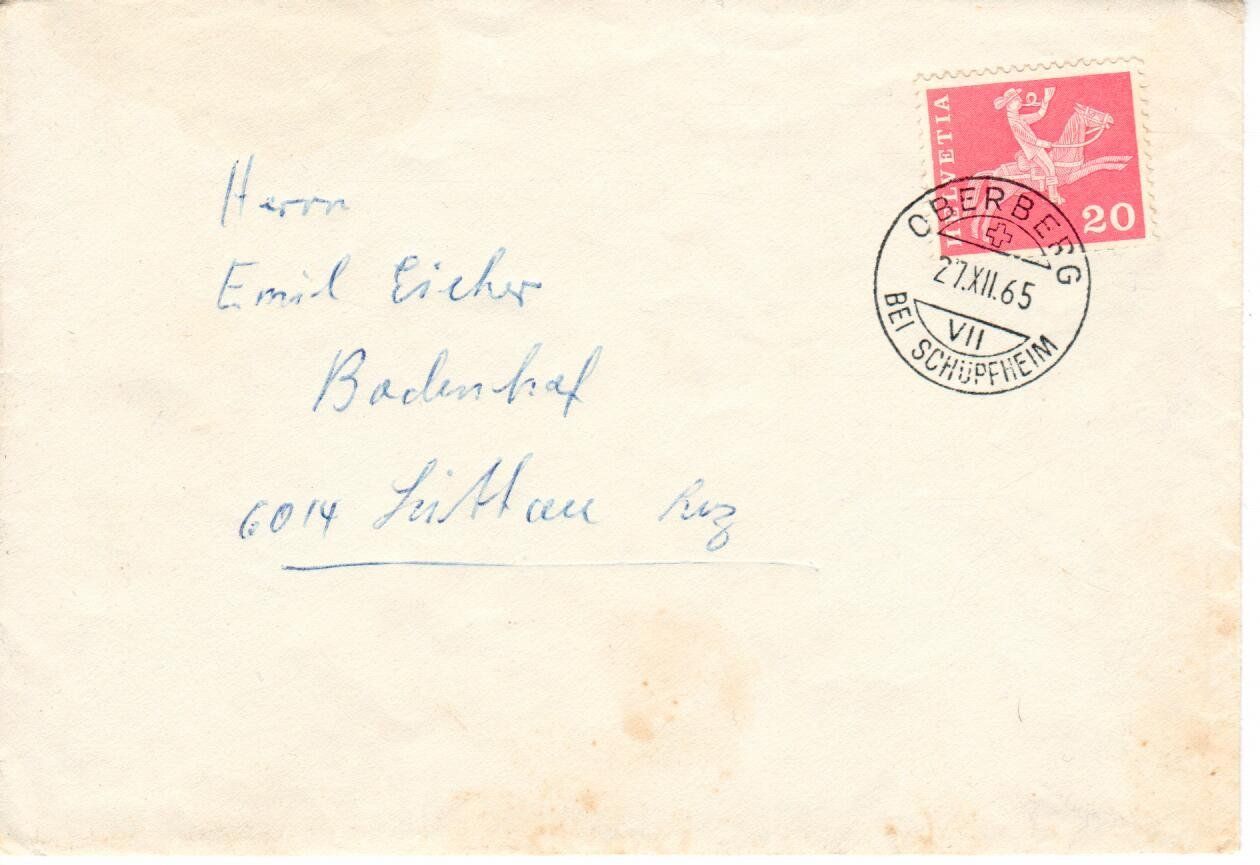 HELVETIA
20
OBERBERG
27.XII.65
VII
BEI SCHÜPFHEIM
Herrn
Emil Eicher
Bodenhof
6014 Littau Luz